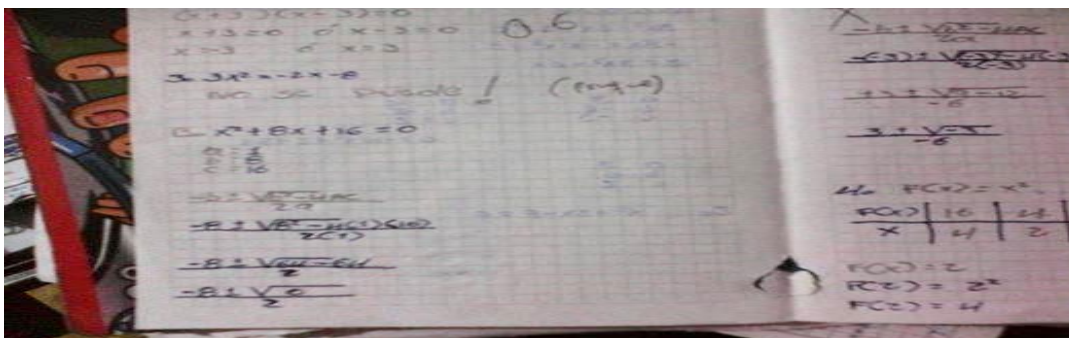 (x+3)(x-3)=0
x+3=0 ó x-3=0
x=-3 ó x=3
3x²=-2x-8
No se puede!
x²+8x+16=0
a=1
b=8
c=16
-b±√b²-4ac
2a
-8±√8²-4(1)(16)
2(1)
-8±√64-64
2
-8±√0
2
0.6
-b±√b²-4ac
2a
-6
3±√-3
-6
4. F(x)=x²
F(x) | 16 | 4
x | 4 | 2
F(x)=2
F(2)=2²
F(2)=4